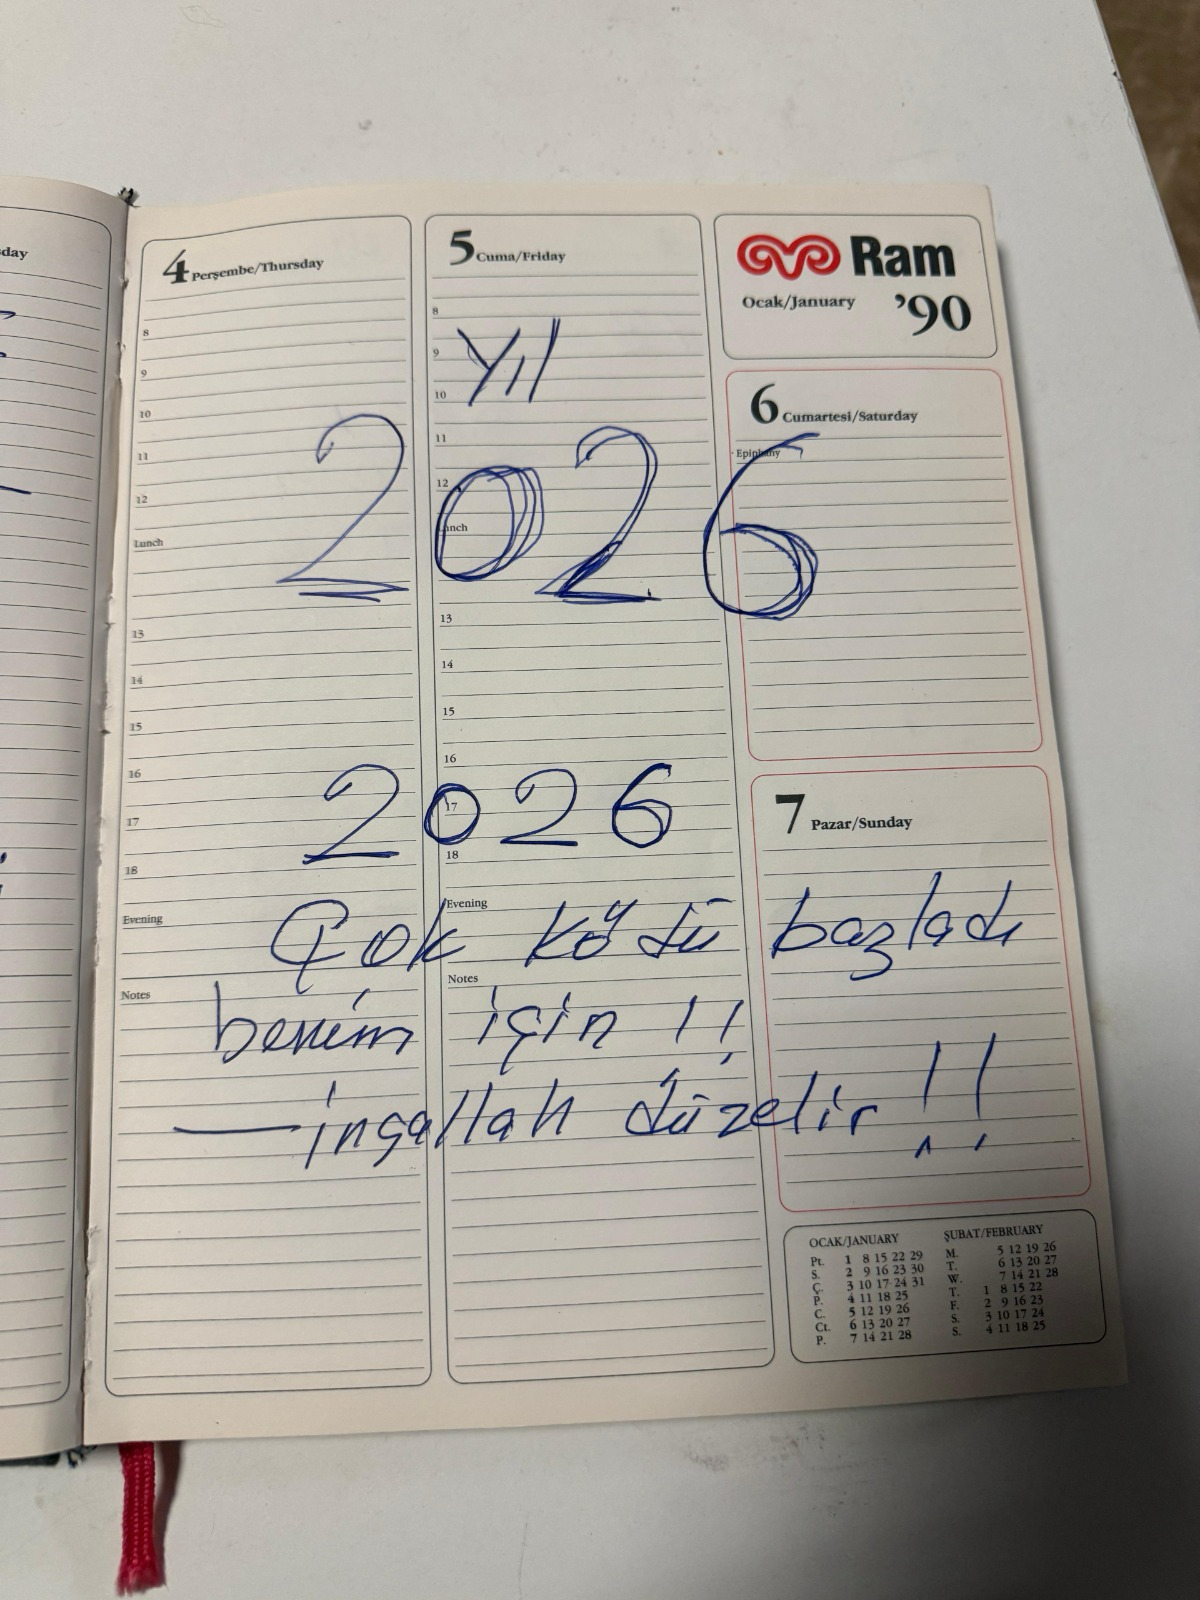 sday
4 Perşembe/Thursday
8
9
10
11
12
Lunch
13
14
15
16
17
18
Evening
Notes
5 Cuma/Friday
8
9
10
11
12
Lunch
13
14
15
16
17
18
Evening
Notes
Ram
Ocak/January '90
6 Cumartesi/Saturday
· Epiphany
7 Pazar/Sunday
Yıl
2026
2026
Çok kötü bazladı
benim için !!
— inşallah düzelir !!
OCAK/JANUARY
Pt. 1 8 15 22 29
S. 2 9 16 23 30
Ç. 3 10 17 24 31
P. 4 11 18 25
C. 5 12 19 26
Ct. 6 13 20 27
P. 7 14 21 28
ŞUBAT/FEBRUARY
M. 5 12 19 26
T. 6 13 20 27
W. 7 14 21 28
T. 1 8 15 22
F. 2 9 16 23
S. 3 10 17 24
S. 4 11 18 25